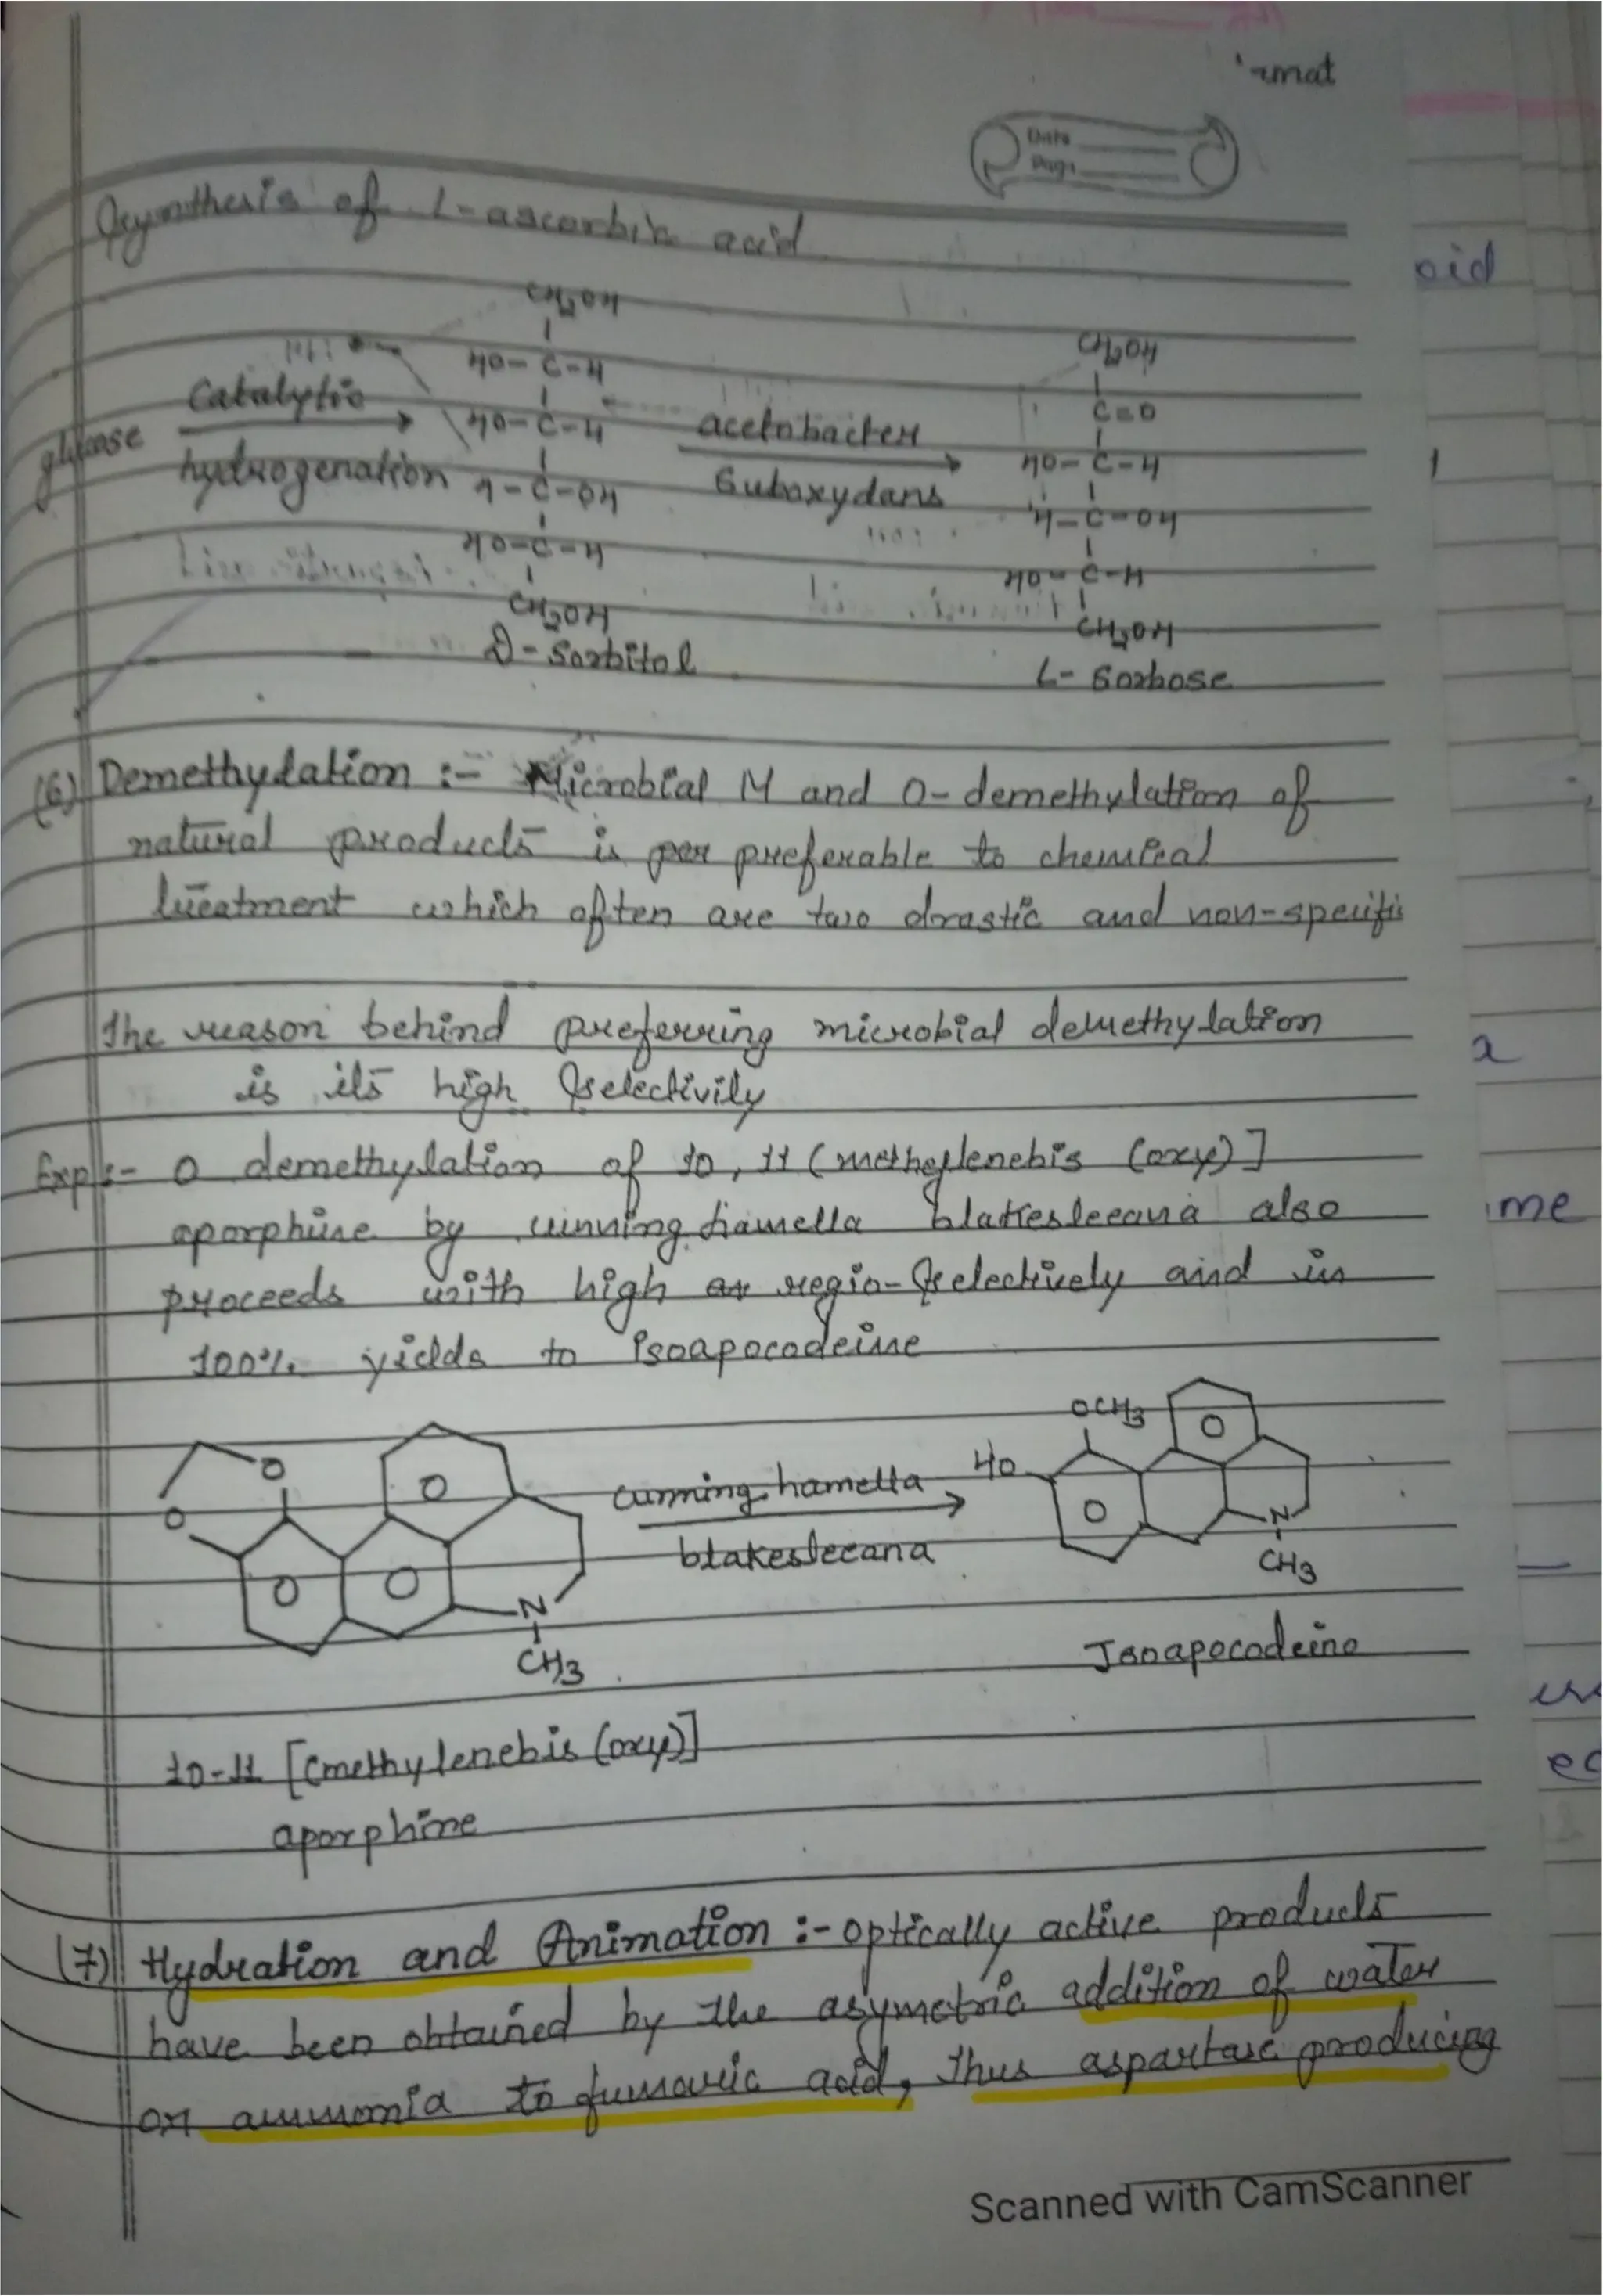 rmat
Date
Page
Synthesis of L-ascorbic acid
oid
glucose
Catalytic
hydrogenation
CH2OH
HO-C-H
HO-C-H
H-C-OH
HO-C-H
CH2OH
D-Sorbitol
acetobacter
Suboxydans
CH2OH
C=O
HO-C-H
H-C-OH
HO-C-H
CH2OH
L-Sorbose
(6) Demethylation :- Microbial N and O-demethylation of
natural products is preferable to chemical
treatment which often are two drastic and non-specific
The reason behind preferring microbial demethylation
is its high selectivity
Exp:- O demethylation of 10, 11 (methylenebis (oxy)]
aporphine by cunninghamella blakesleeana also
me
proceeds with high regio-selectively and in
100% yields to Isoapocodeine
O
O
N
CH3
cunninghamella
blakesleeana
OCH3
HO
N
CH3
Isoapocodeine
10-11 [(methylenebis (oxy)]
aporphine
(7) Hydration and Animation :- optically active products
have been obtained by the asymetric addition of water
or ammonia to fumaric acid, thus aspartase producing
Scanned with CamScanner